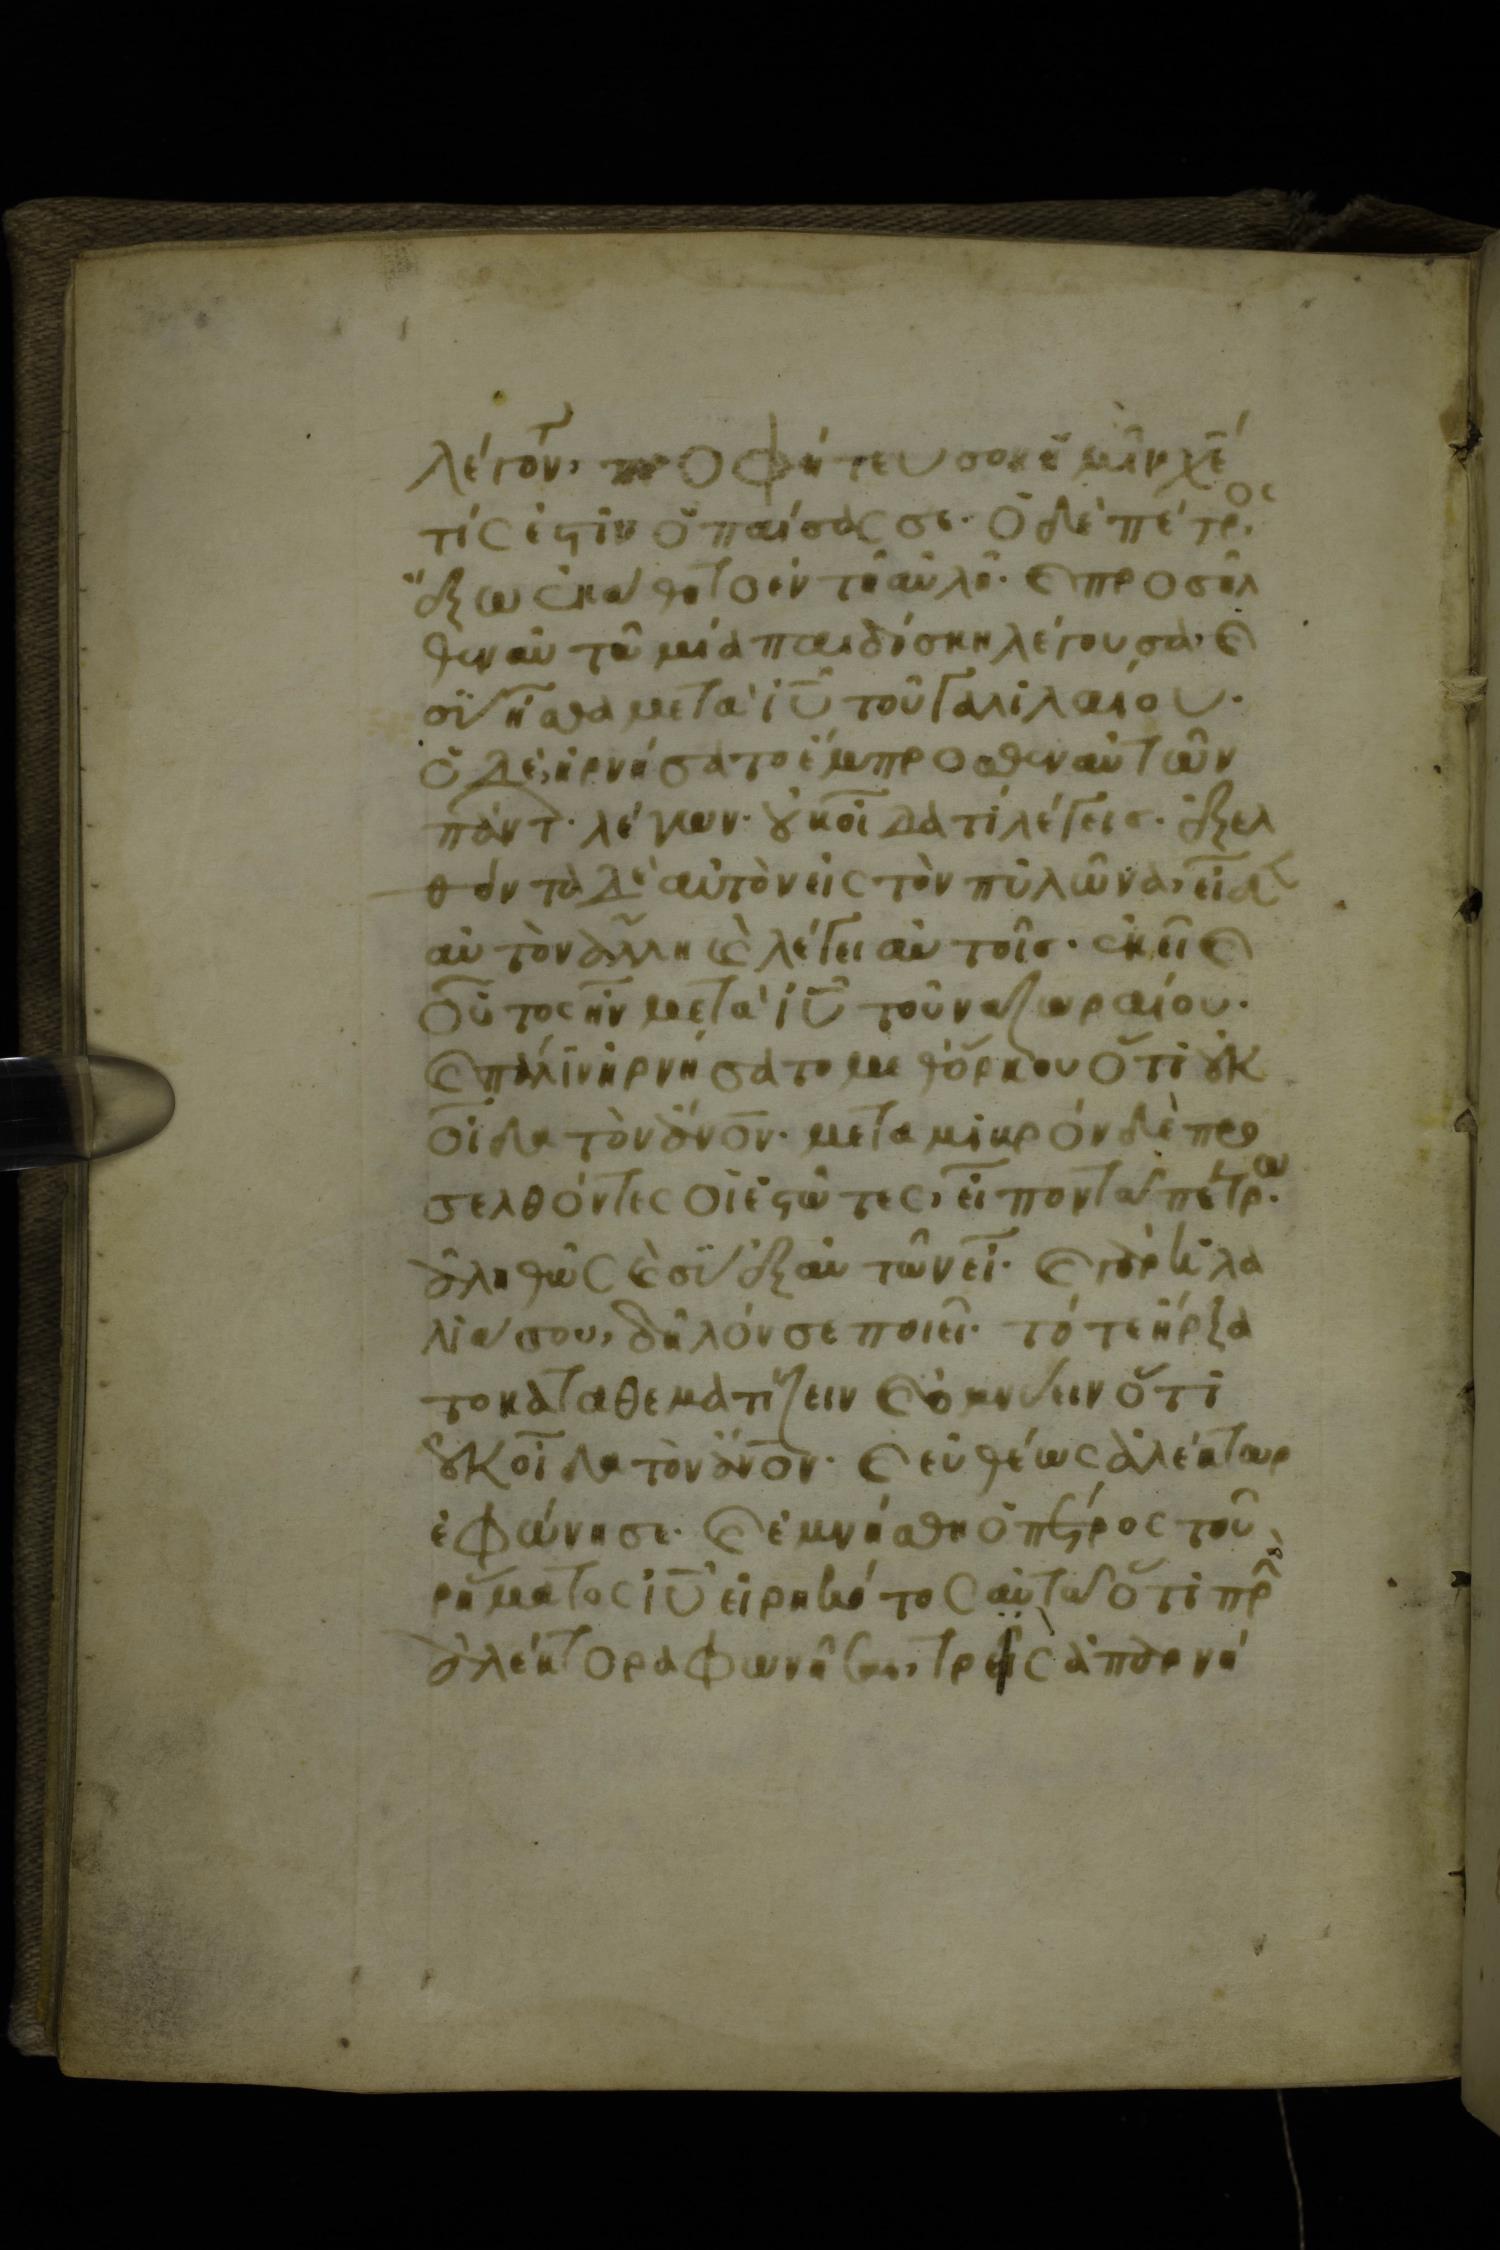 λέγοντ, προφήτευσον ἡμῖν χ̅ε̅
τίς ἐστιν ὁ παίσας σε· ὁ δὲ πέτρος
ἔξω ἐκάθητο ἐν τῆ αὐλῆ· καὶ προσῆλ
θεν αὐτῶ μία παιδίσκη λέγουσα, καὶ
σὺ ἦσθα μετὰ ἰ̅υ̅ τοῦ γαλιλαίου·
ὁ δὲ, ἠρνήσατο ἔμπροσθεν αὐτῶν
πάντ· λέγων· οὐκ οἶδα τί λέγεις· ἐξελ
θόντα δὲ αὐτὸν εἰς τὸν πυλῶνα, εἶδ
αὐτὸν ἄλλη καὶ λέγει αὐτοῖς· ἐκεῖ καὶ
οὗτος ἦν μετὰ ἰ̅υ̅ τοῦ ναζωραίου·
καὶ πάλιν ἠρνήσατο μεθ' ὅρκου ὅτι οὐκ
οἶδα τὸν ἄ̅ν̅ο̅ν̅· μετὰ μικρὸν δὲ προ
σελθόντες οἱ ἑστῶτες, εἶπον τῶ πέτρω·
ἀληθῶς καὶ σὺ ἐξ αὐτῶν εἶ· καὶ γὰρ ἡ λα
λιά σου, δῆλόν σε ποιεῖ· τότε ἤρξα
το καταθεματίζειν καὶ ὀμνύειν ὅτι
οὐκ οἶδα τὸν ἄ̅ν̅ο̅ν̅· καὶ εὐθέως ἀλέκτωρ
ἐφώνησε· καὶ ἐμνήσθη ὁ πέτρος τοῦ
ρήματος ἰ̅υ̅ εἰρηκότος αὐτῶ ὅτι πρὶν
ἀλέκτορα φωνῆσαι, τρεῖς ἀπαρνή